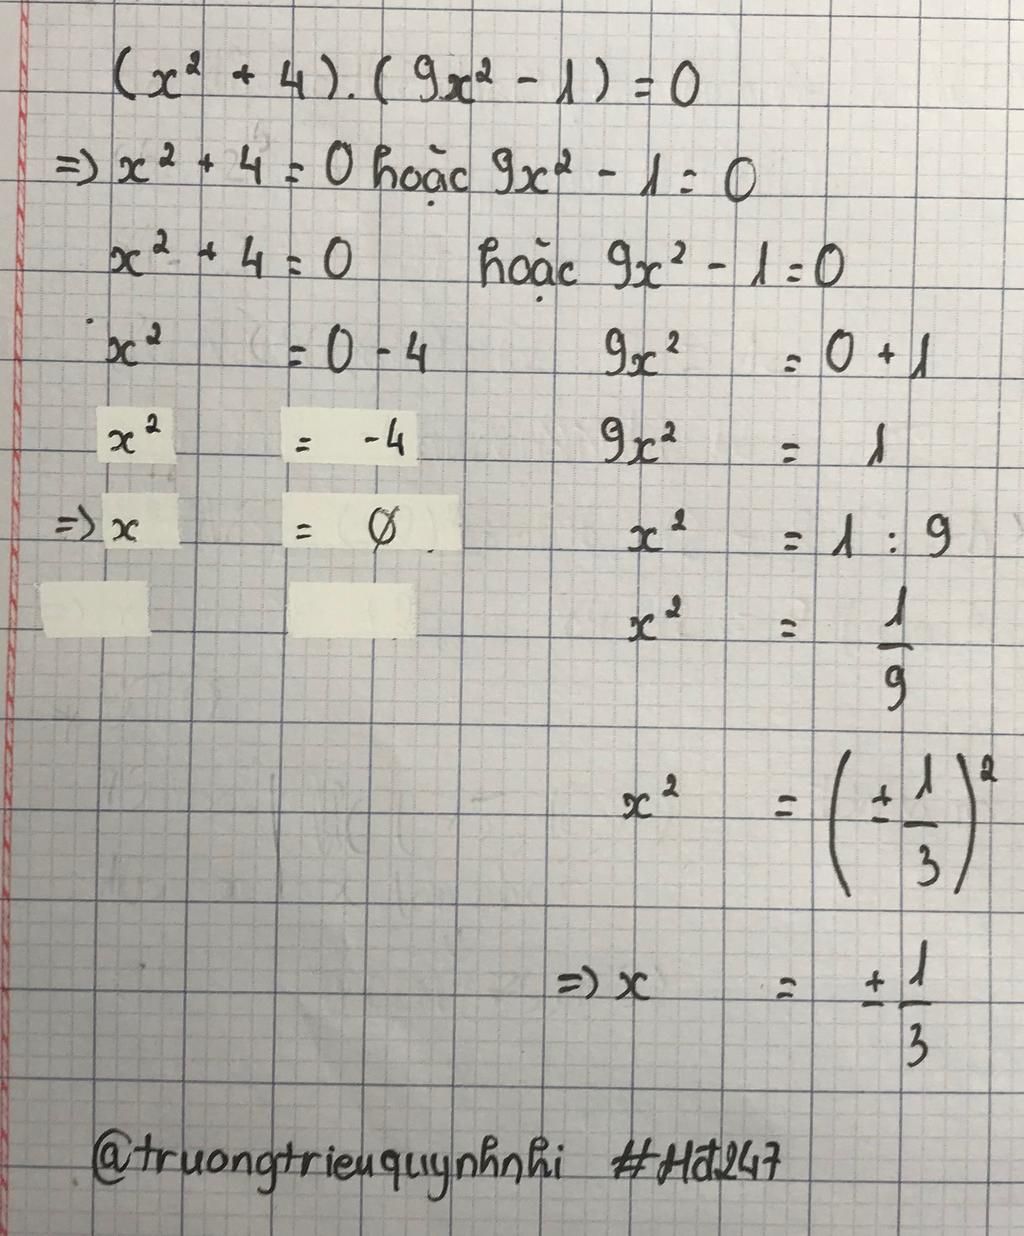 (x² + 4).(9x² - 1) = 0
=> x² + 4 = 0 hoặc 9x² - 1 = 0
x² + 4 = 0 hoặc 9x² - 1 = 0
x² = 0 - 4 9x² = 0 + 1
x² = -4 9x² = 1
=> x = Ø x² = 1 : 9
x² = 1/9
x² = (± 1/3)²
=> x = ± 1/3
@truongtrieuquynhnhi #Hd247